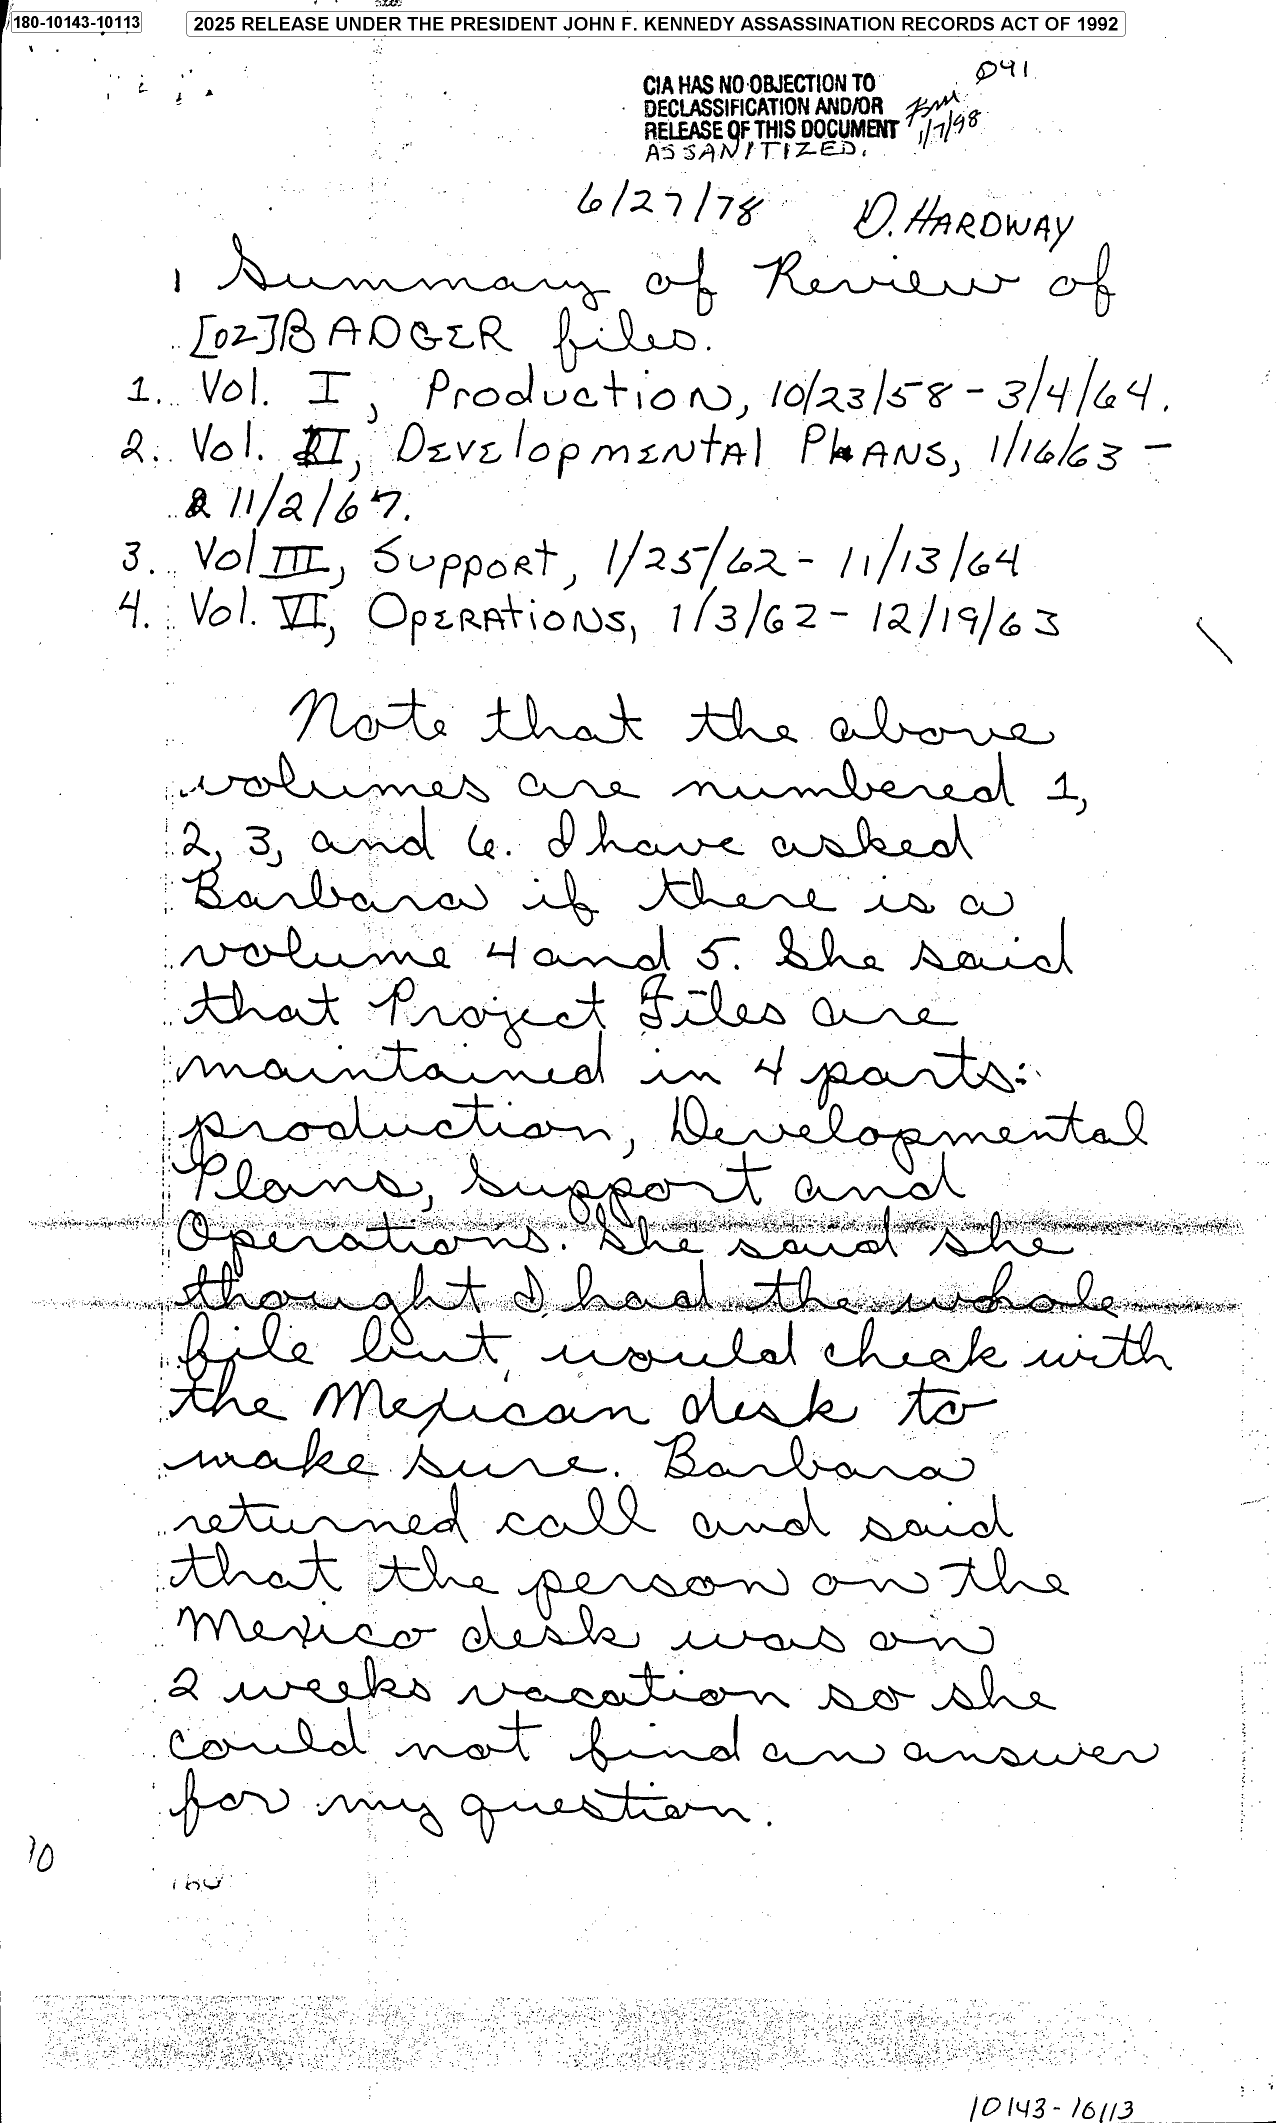 180-10143-10113
2025 RELEASE UNDER THE PRESIDENT JOHN F. KENNEDY ASSASSINATION RECORDS ACT OF 1992
041
CIA HAS NO OBJECTION TO
DECLASSIFICATION AND/OR
RELEASE OF THIS DOCUMENT
AS SANITIZED.
1/7/98
6/27/78 D. HARDWAY
1 Summary of Review of
[02]BADGER files.
1. Vol. I, Production, 10/23/58 - 3/4/64.
2. Vol. II, Developmental Plans, 1/16/63 -
11/2/67.
3. Vol III, Support, 1/25/62 - 11/13/64
4. Vol. VI, Operations, 1/3/62 - 12/19/63
Note that the above
volumes are numbered 1,
2, 3, and 6. I have asked
Barbara if there is a
volume 4 and 5. She said
that Project Files are
maintained in 4 parts:
production, Developmental
Plans, Support and
Operations. She said she
thought I had the whole
file but would check with
the Mexican desk to
make sure. Barbara
returned call and said
that the person on the
Mexico desk was on
2 weeks vacation so she
could not find an answer
for my question.
10
10143-10113